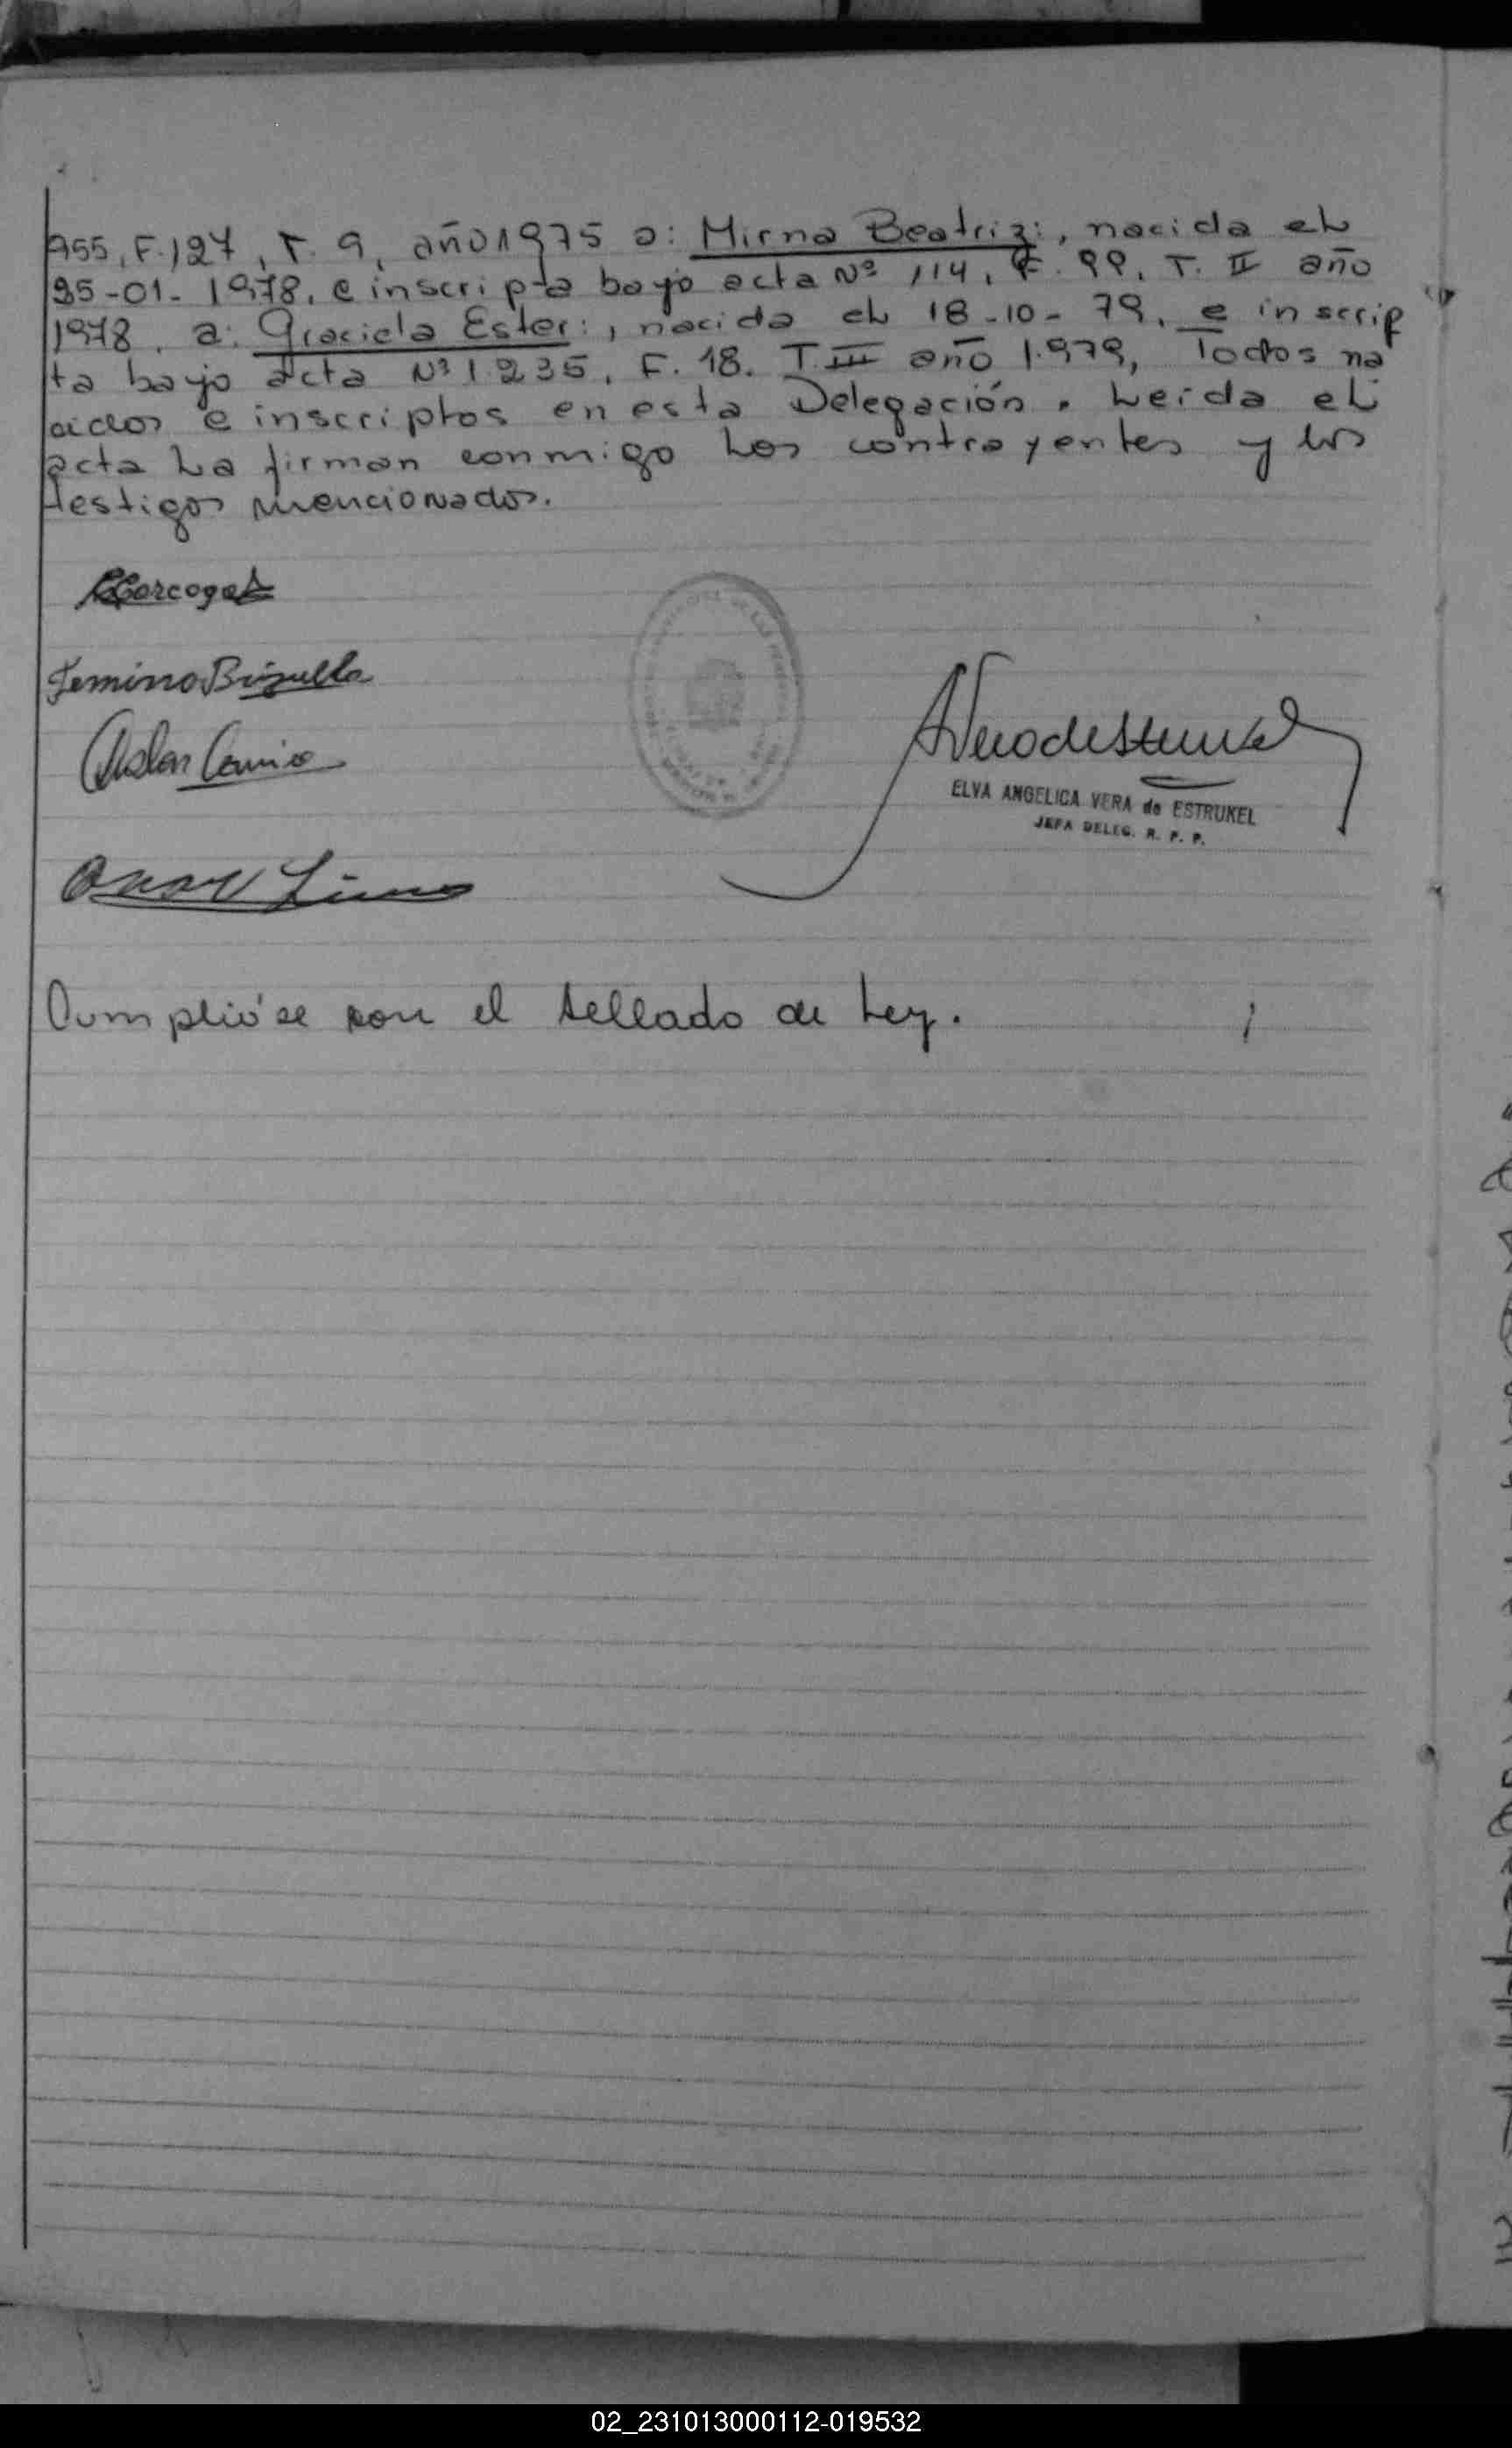 955, F. 127, T. 9, año 1975 a: Mirna Beatriz:, nacida el
25-01-1978, e inscripta bajo acta Nº 114, F. 99, T. II año
1978, a: Graciela Ester:, nacida el 18-10-79, e inscrip
ta bajo acta Nº 1.235, F. 18. T. III año 1.979, Todos na
cidos e inscriptos en esta Delegación. Leida el
acta La firman conmigo Los contrayentes y los
testigos mencionados.
ELVA ANGELICA VERA de ESTRUKEL
JEFA DELEG. R. P. P.
Cumplióse con el sellado de Ley.
02_231013000112-019532